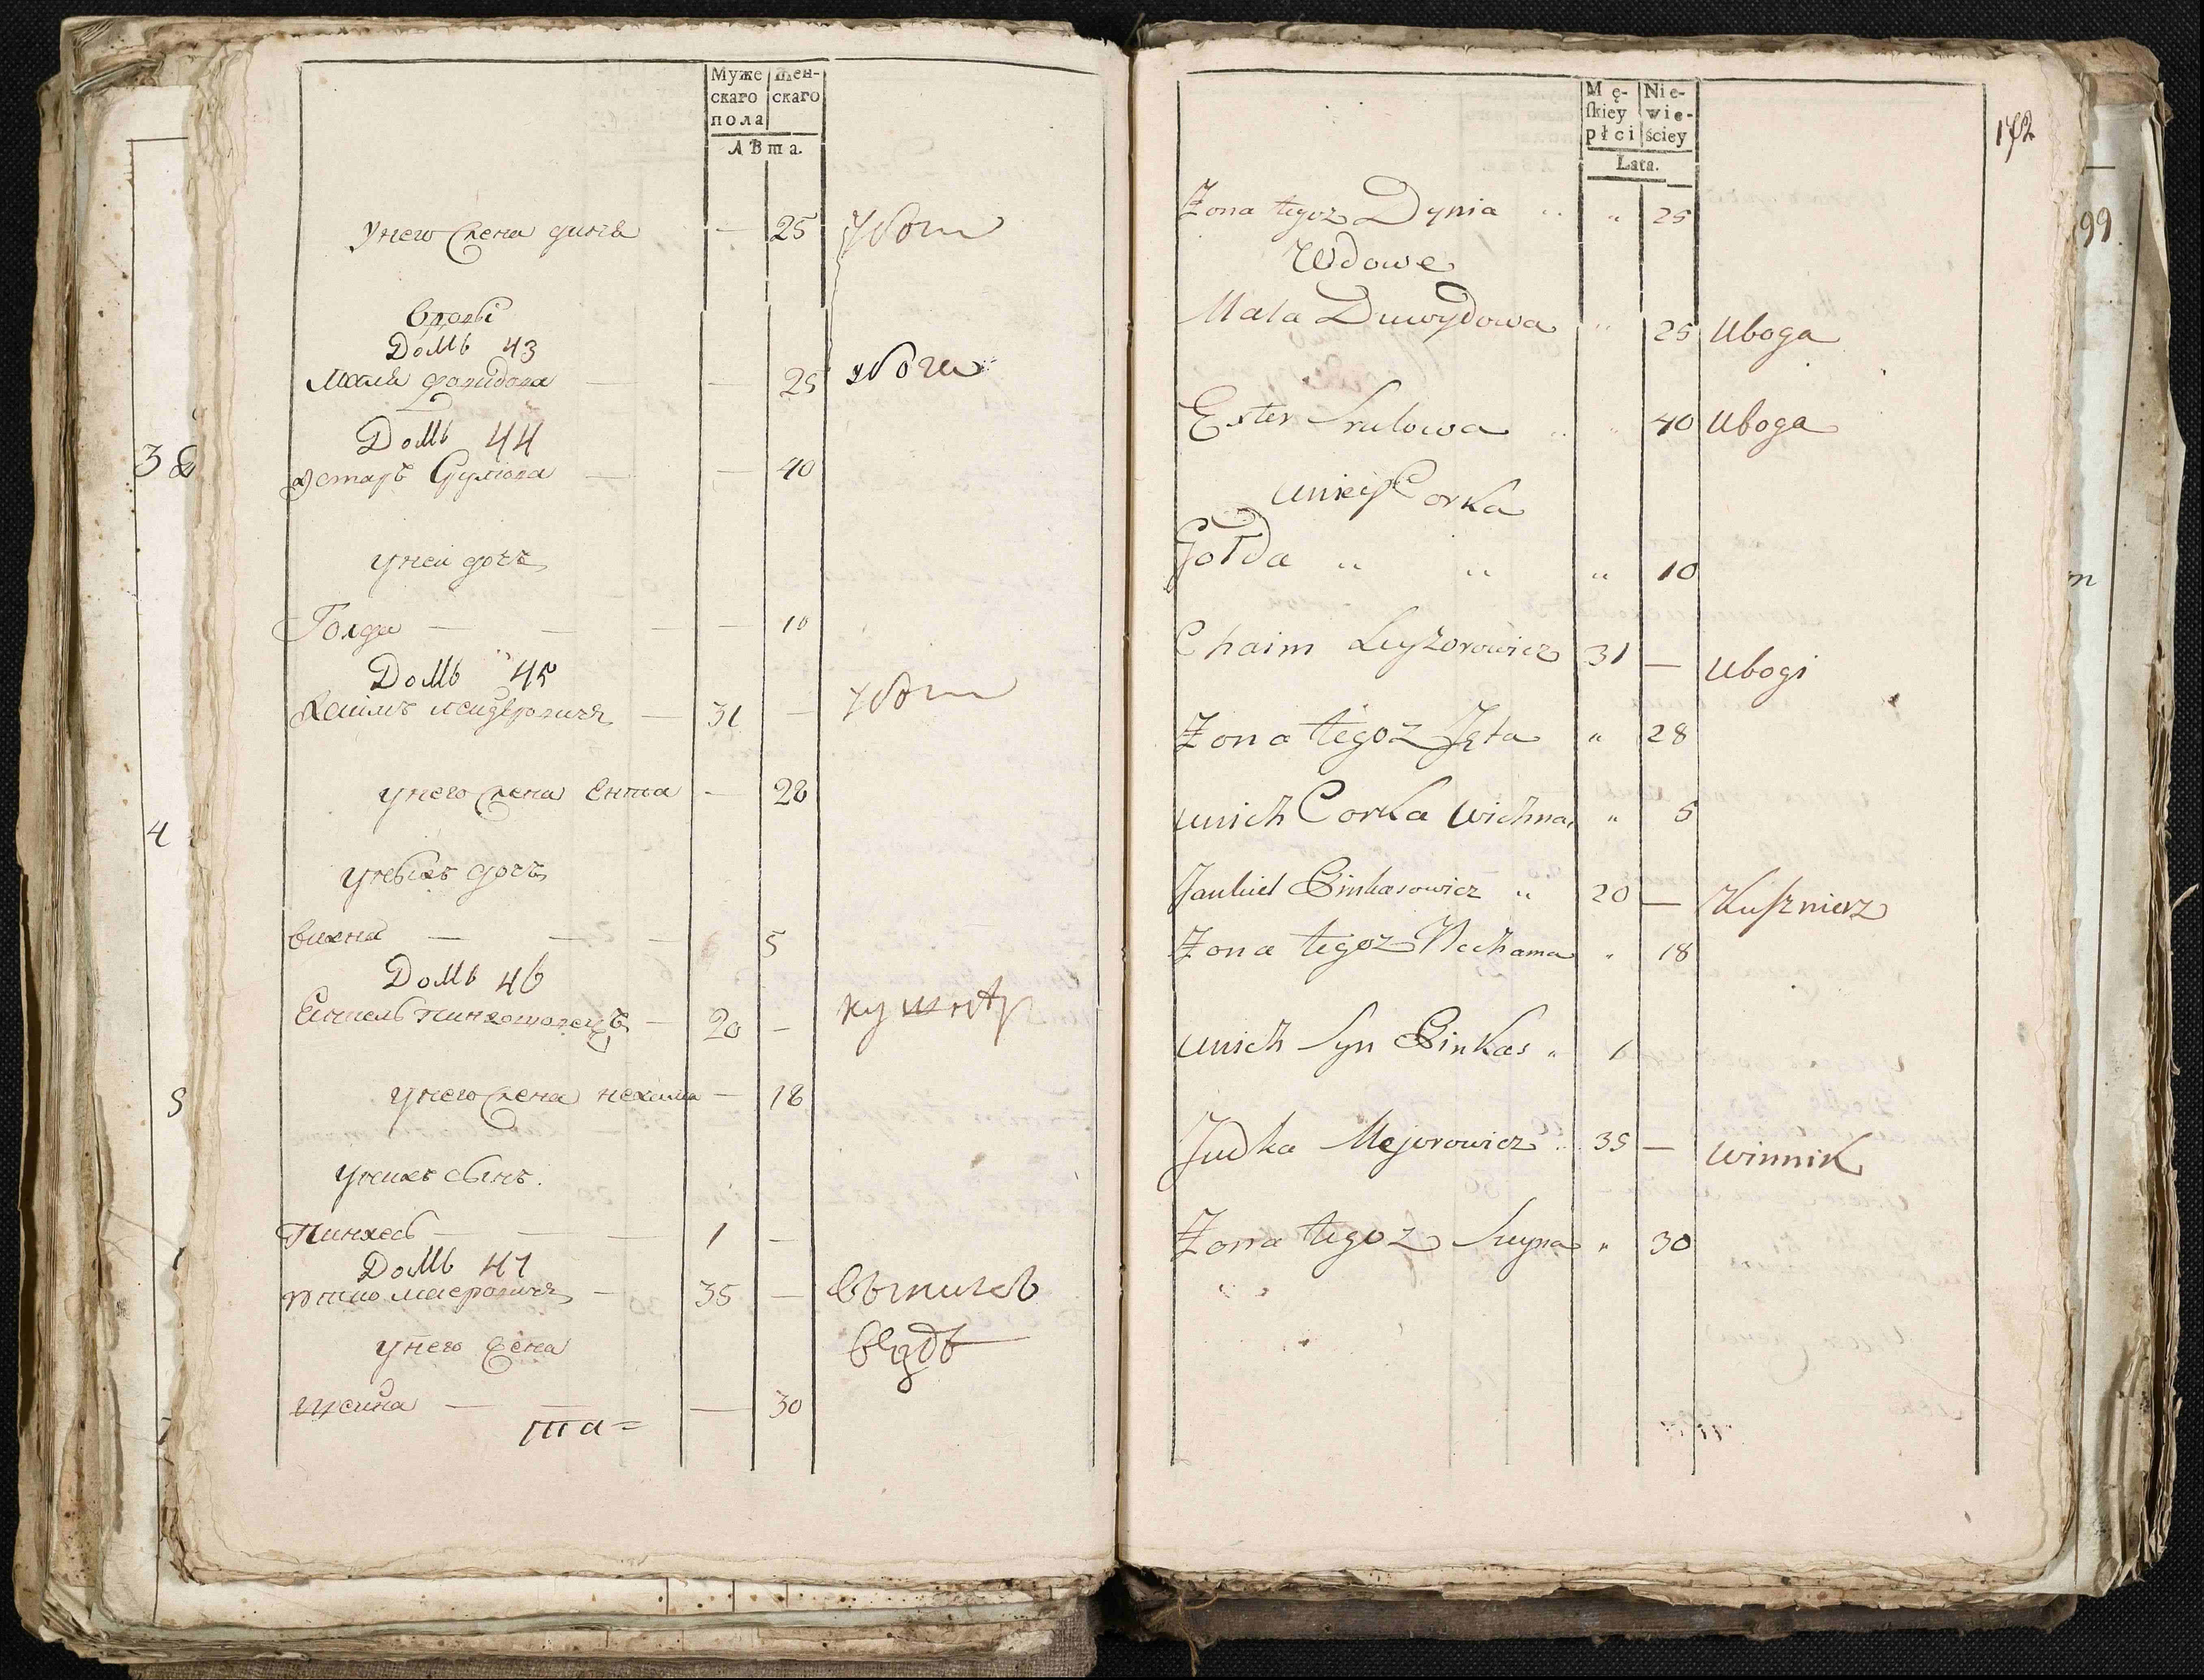 Муже скаго пола
Жен- скаго
лѣта.
У него жена дыня — 25 убоги
вдовы
Домъ 43
Маля довидова — — 25 убога
Домъ 44
Эстаръ Сруліова — — 40
У ней дочъ
Голда — — — — 10
Домъ 45
Хаимъ лейзеровичъ — 31 — убоги
У него жена Ента — 28
У ныхъ дочъ
вихна — — — 5
Домъ 46
— 20 — кушнѣр
У него жена нехама — 18
У нихъ сынъ.
Пинхесъ — — — 1 —
Домъ 47
маеровичъ — 35 —
У него жена
— — — 30
172
Mę- ſkiey płci
Nie- wie- ściey
Lata.
Zona tegoz Dynia " " 25
Wdowe
Mala Duwydowa " 25 Uboga
Ester Srulowa " " 40 Uboga
Uniey Corka
Golda " " " 10
Chaim Leyzorowicz 31 — Ubogi
Zona tegoz Jęta " 28
Unich Corka Wichna " 5
Jankiel Pinkasowicz " 20 — Kuſznierz
Zona tegoz Nechama " 18
Unich Syn Pinkas " 1
Judka Mejorowicz " 35 — Winnik
Zona tegoz " 30
99
38
4
5